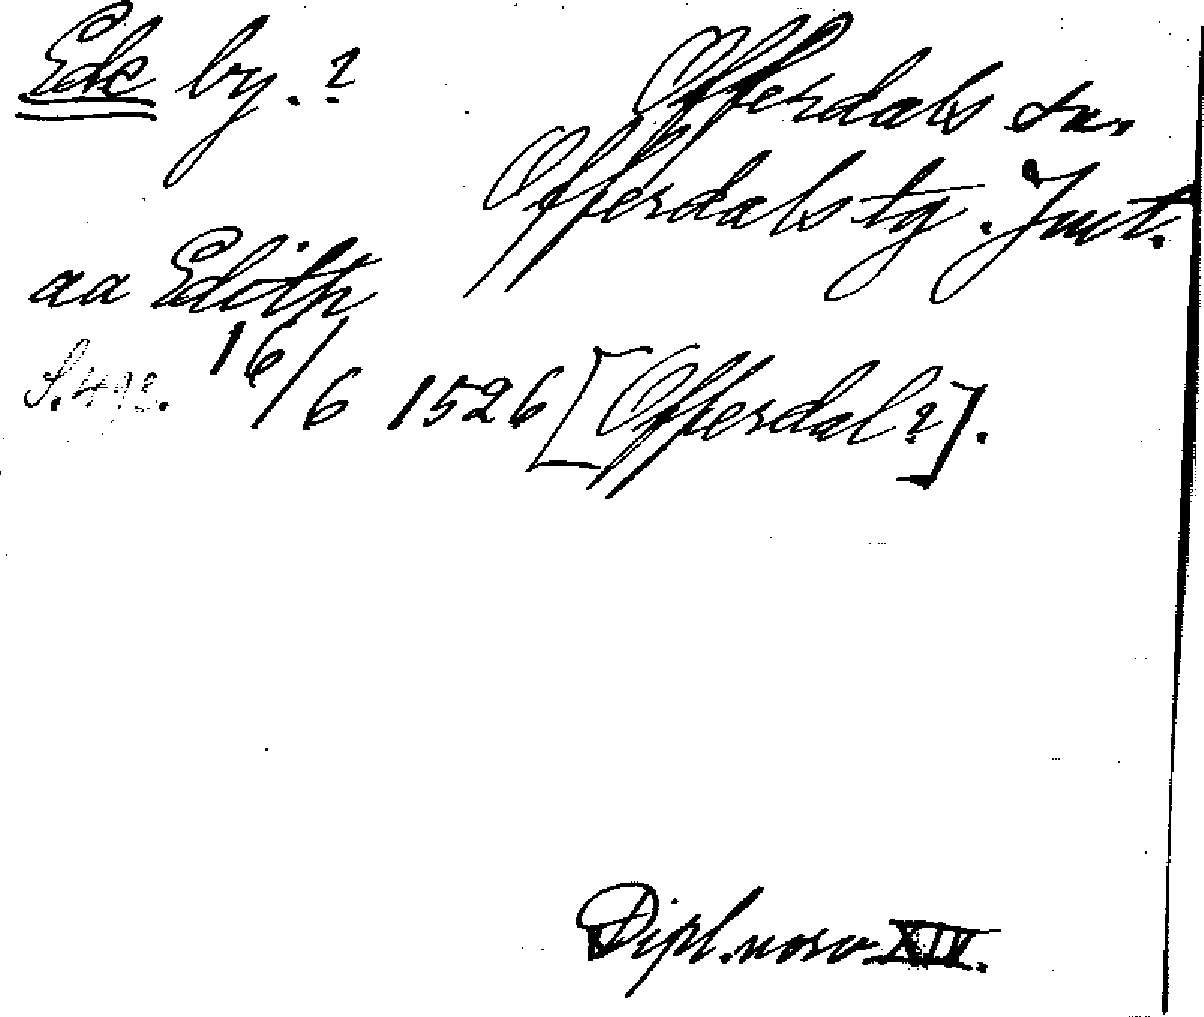 Ede by. ?
Offerdals sn.
Offerdals tg. Jmt.
aa Edith
S. 493. 16/6 1526 [Offerdal?].
Dipl. norv. XIV.